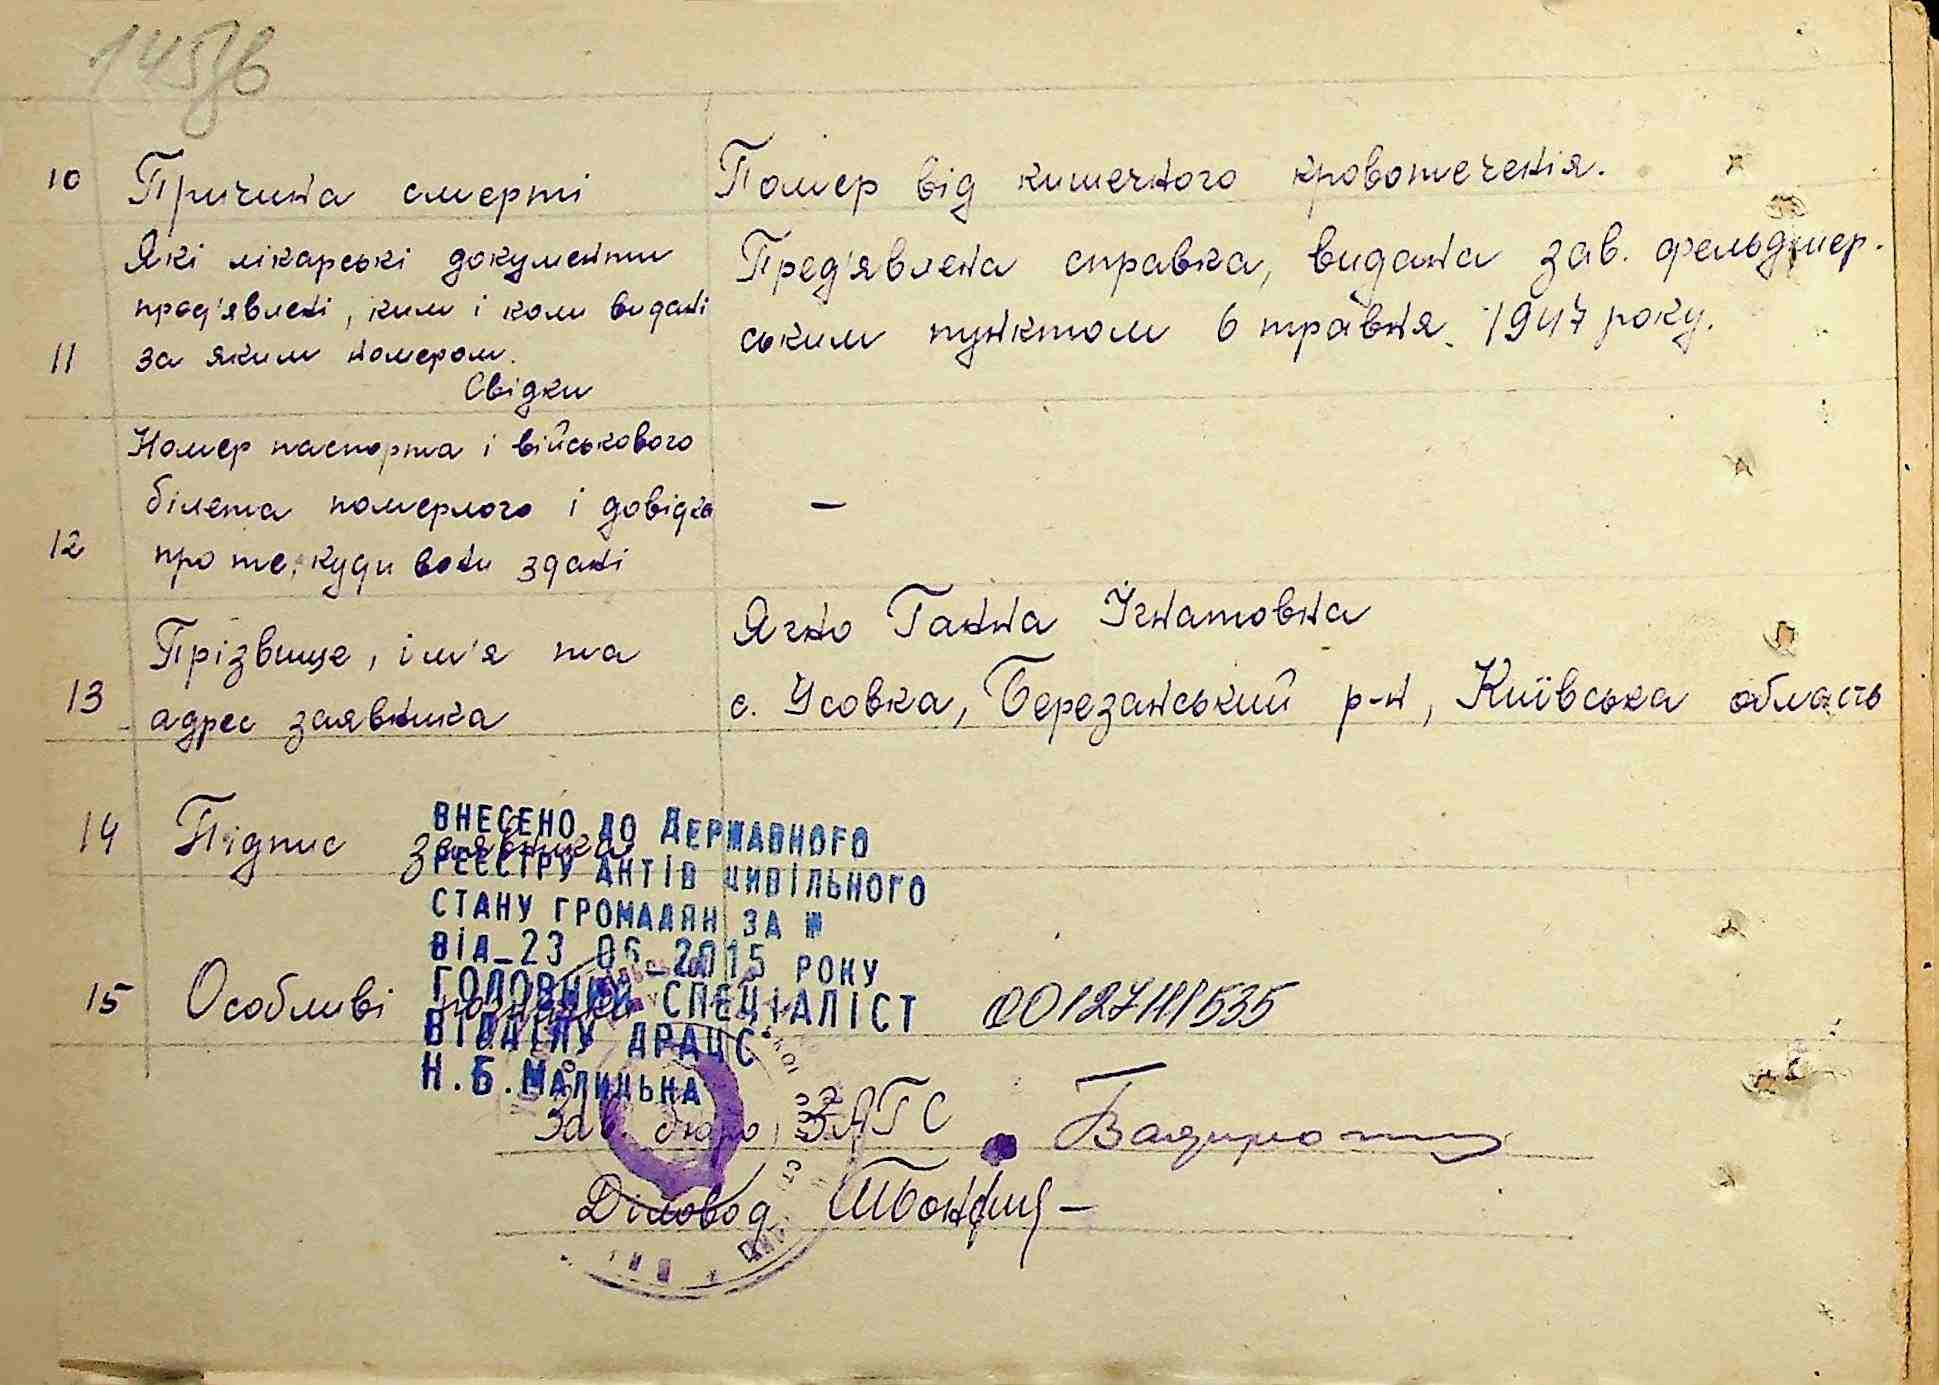 145зв
10 Причина смерті
Помер від кишечного кровотеченія.
Які лікарські документи
пред'явлені, ким і коли видані
11 за яким номером.
Свідки
Пред'явлена справка, видана зав. фельдшер-
ським пунктом 6 травня 1947 року.
Номер паспорта і військового
білета померлого і довідка
12 про те, куди вони здані
—
Прізвище, ім'я та
13 адрес заявника
Ячно Ганна Ігнатовна
с. Усовка, Березанський р-н, Київська область
14 Підпис заявника
ВНЕСЕНО ДО ДЕРЖАВНОГО
РЕЄСТРУ АКТІВ ЦИВІЛЬНОГО
СТАНУ ГРОМАДЯН ЗА №
ВІД_23 06_2015 РОКУ
15 Особливі
ГОЛОВНИЙ СПЕЦІАЛІСТ
ВІДДІЛУ ДРАЦС
Н.Б.МАЛИЦЬКА
00127111535
Зав. бюро ЗАГС
Діловод